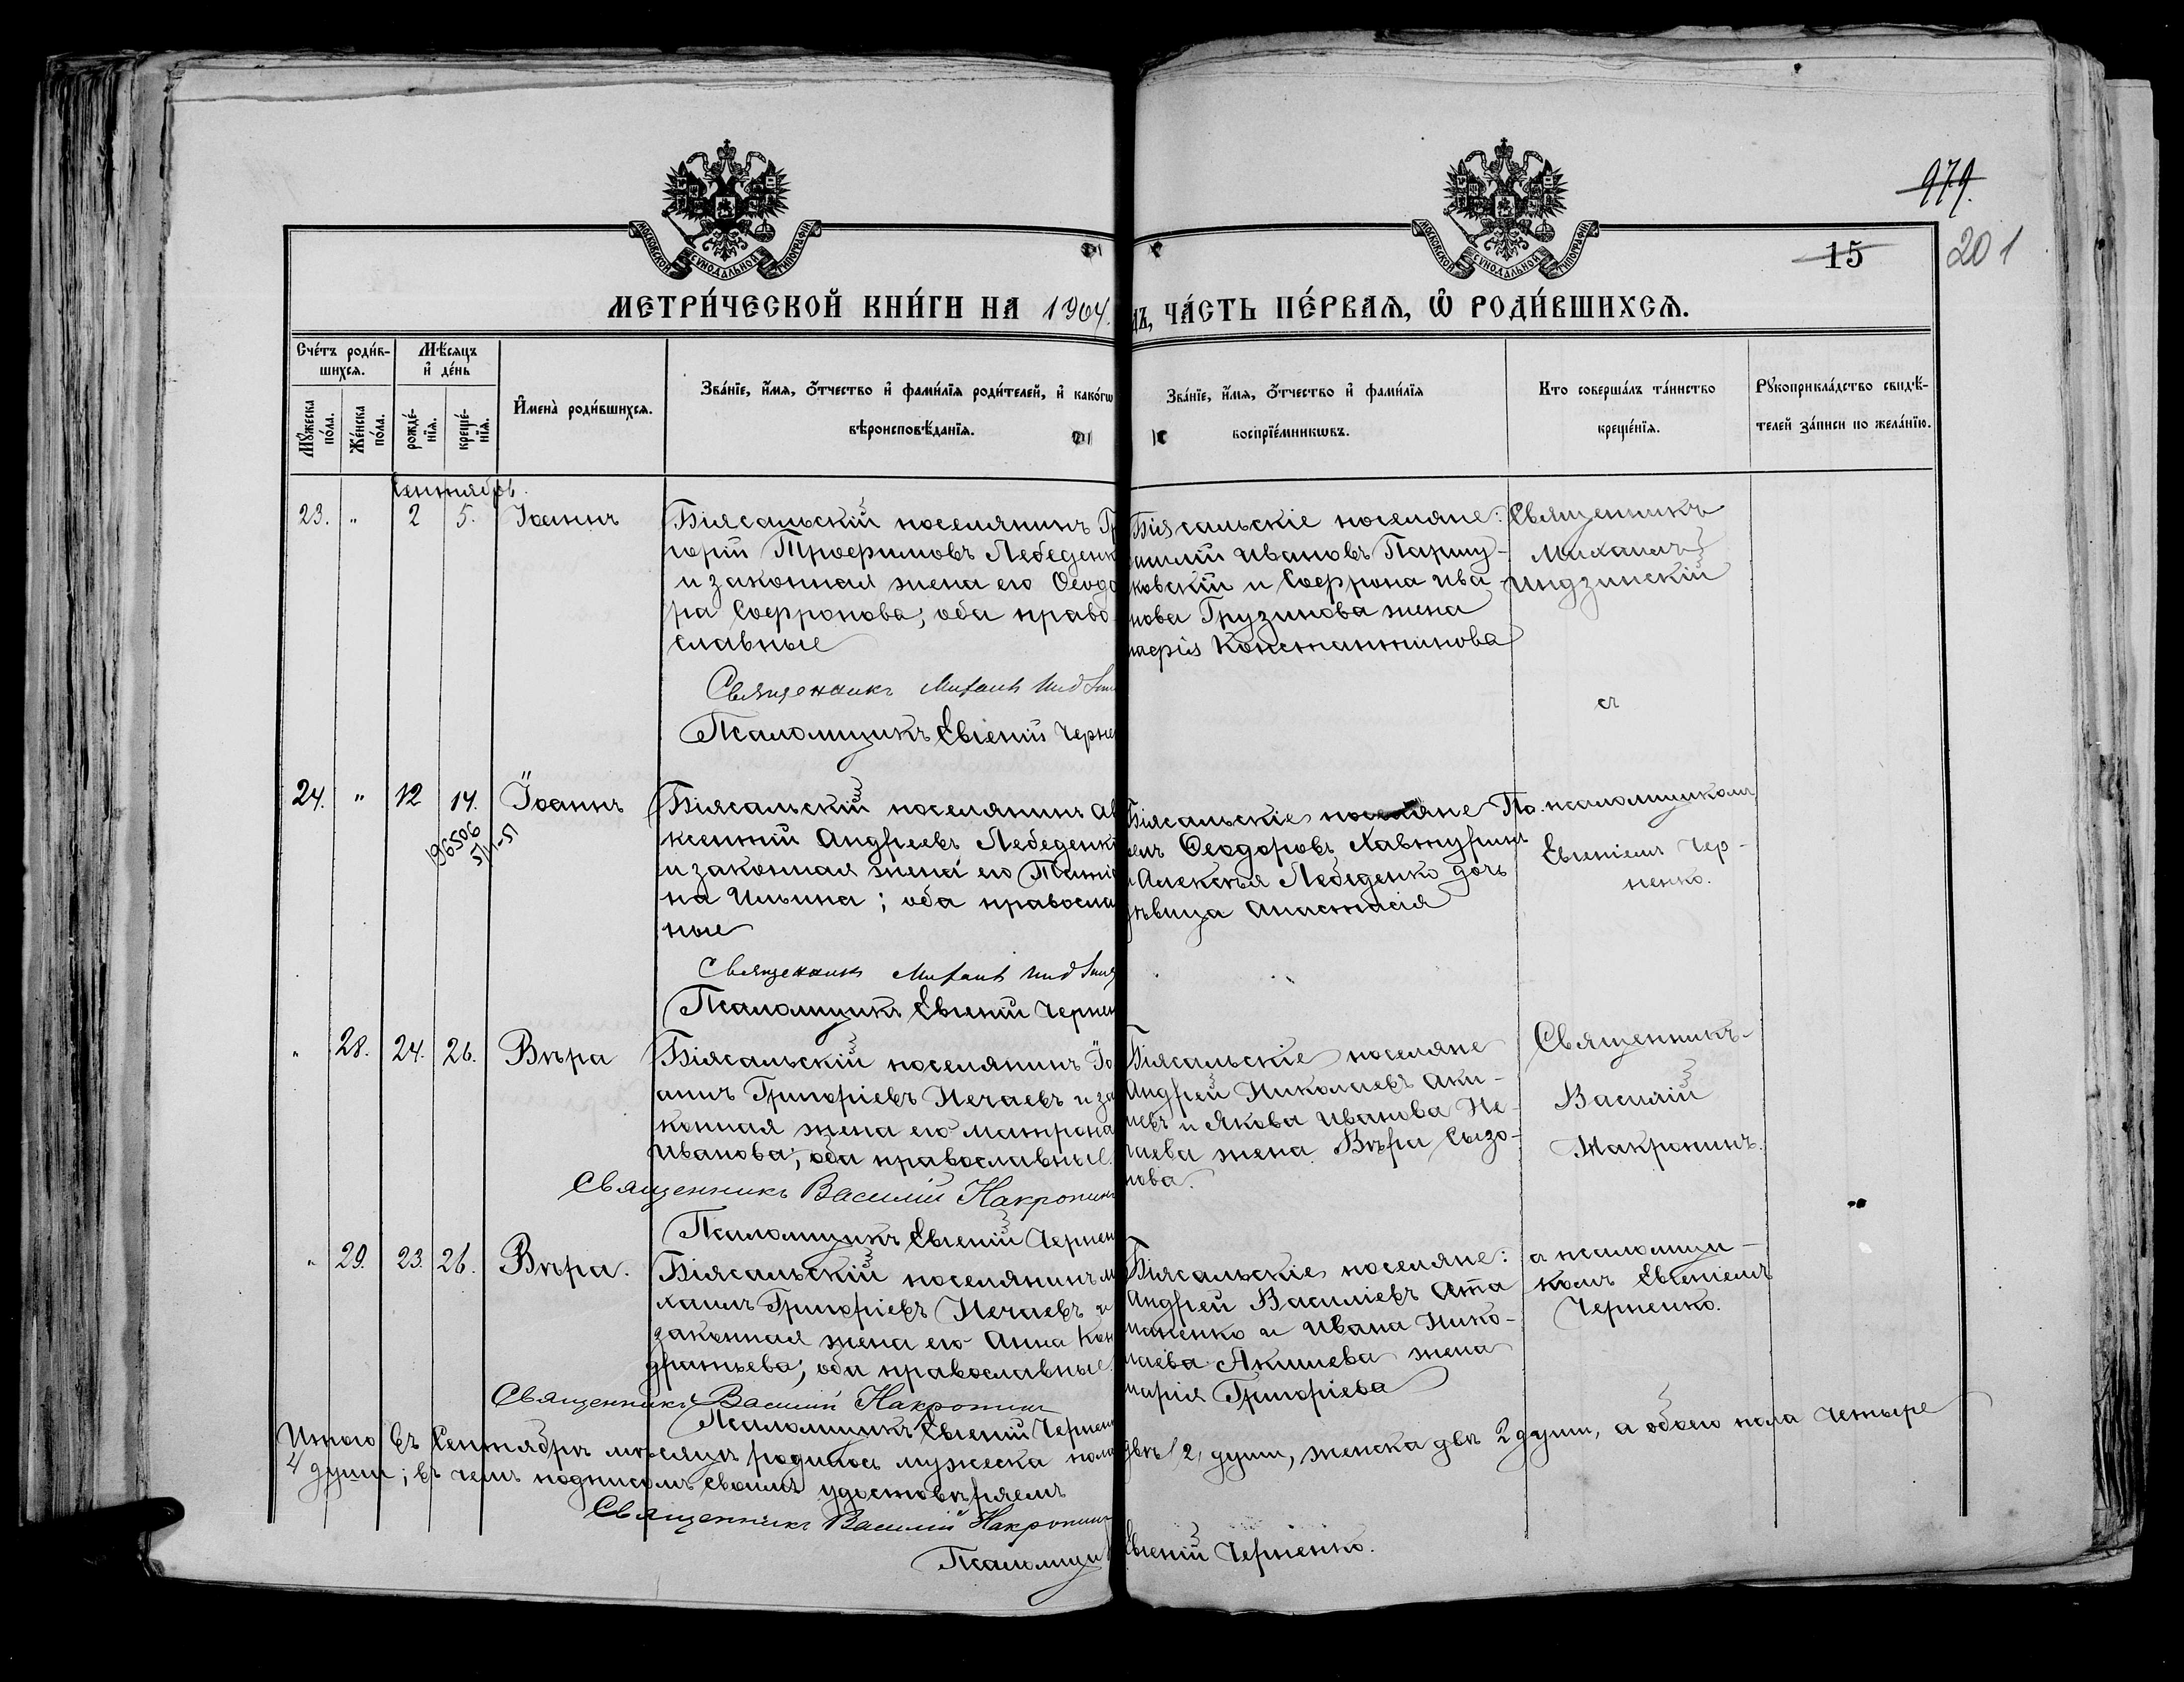 979.
15
201
МОСКОВСКОЙ СУНОДАЛЬНОЙ ТИПОГРАФІИ
МОСКОВСКОЙ СУНОДАЛЬНОЙ ТИПОГРАФІИ
МЕТРИ́ЧЕСКОЙ КНИ́ГИ НА 1904.
ДЪ, ЧА́СТЬ ПЕ́РВАЯ, Ѽ РОДИ́ВШИХСЯ.
Сче́тъ роди́в-
шихся.
Мѣ́сяцъ
и҆ де́нь
Му́жеска
по́ла.
Же́нска
по́ла.
рожде́-
нїя.
креще́-
нїя.
И҆мена̀ роди́вшихся.
Зва́нїе, и҆́мя, ѻ҆́тчество и҆ фами́лїя роди́телей, и҆ како́гѡ
вѣроисповѣ́данїя.
Зва́нїе, и҆́мя, ѻ҆́тчество и҆ фами́лїя
воспрїе́мникѡвъ.
Кто соверша́лъ та́инство
креще́нїя.
Рукоприкла́дство свидѣ́-
телей за́писи по жела́нїю.
Сентябрь.
23. " 2 5. Іоаннъ
Біясальскій поселянинъ Гр
горій Трофимовъ Лебеденк
и законная жена его Ѳеодо
ра Софронова; оба право
славные
Священникъ Михаилъ Индзин
Псаломщикъ Евгеній Черне
Біясальскіе поселяне:
Ивановъ
ковскій и Софрона Ива-
нова Грузинова жена
Марія Константинова
Священникъ
Михаилъ
Индзинскій
съ
24. " 12 14. Іоаннъ
196506
5/VI-51
Біясальскій поселянинъ Ав
ксентій Андреевъ Лебеденк
и законная жена его Татія
на Ильина; оба православ
ные
Священникъ Михаилъ Индзин
Псаломщикъ Евгеній Черне
Біясальскіе поселяне
Ѳеодоровъ
и Алексѣя Лебеденко дочь
дѣвица Анастасія
псаломщикомъ
Евгеніемъ Чер-
ненко.
" 28. 24. 26. Вѣра
Біясальскій поселянинъ Іо
аннъ Григоріевъ Нечаевъ и за
конная жена его Матрона
Иванова; оба православные.
Священникъ Василій Накропинъ
Псаломщикъ Евгеній Чернен
Біясальскіе поселяне
Андрей Николаевъ Аки-
шевъ и Якова Иванова Не-
чаева жена Вѣра Сызо-
нова.
Священникъ
Василій
Накропинъ.
" 29. 23. 26. Вѣра.
Біясальскій поселянинъ М
хаилъ Григоріевъ Нечаевъ и
законная жена его Анна Кон
дратьева; оба православные.
Священникъ Василій Накропинъ
Псаломщикъ Евгеній Чернен
Біясальскіе поселяне:
Андрей Василіевъ Ата
маненко и Ивана Нико-
лаева Акишева жена
Марія Григоріева
съ псаломщи-
комъ Евгеніемъ
Черненко.
Итого въ Сентябрѣ мѣсяцѣ родилось мужеска пола двѣ 2 души, женска двѣ 2 души, а обоего пола четыре
4 души; въ чемъ подписомъ своимъ удостовѣряемъ
Священникъ Василій Накропинъ
Псаломщи Евгеній Черненко.